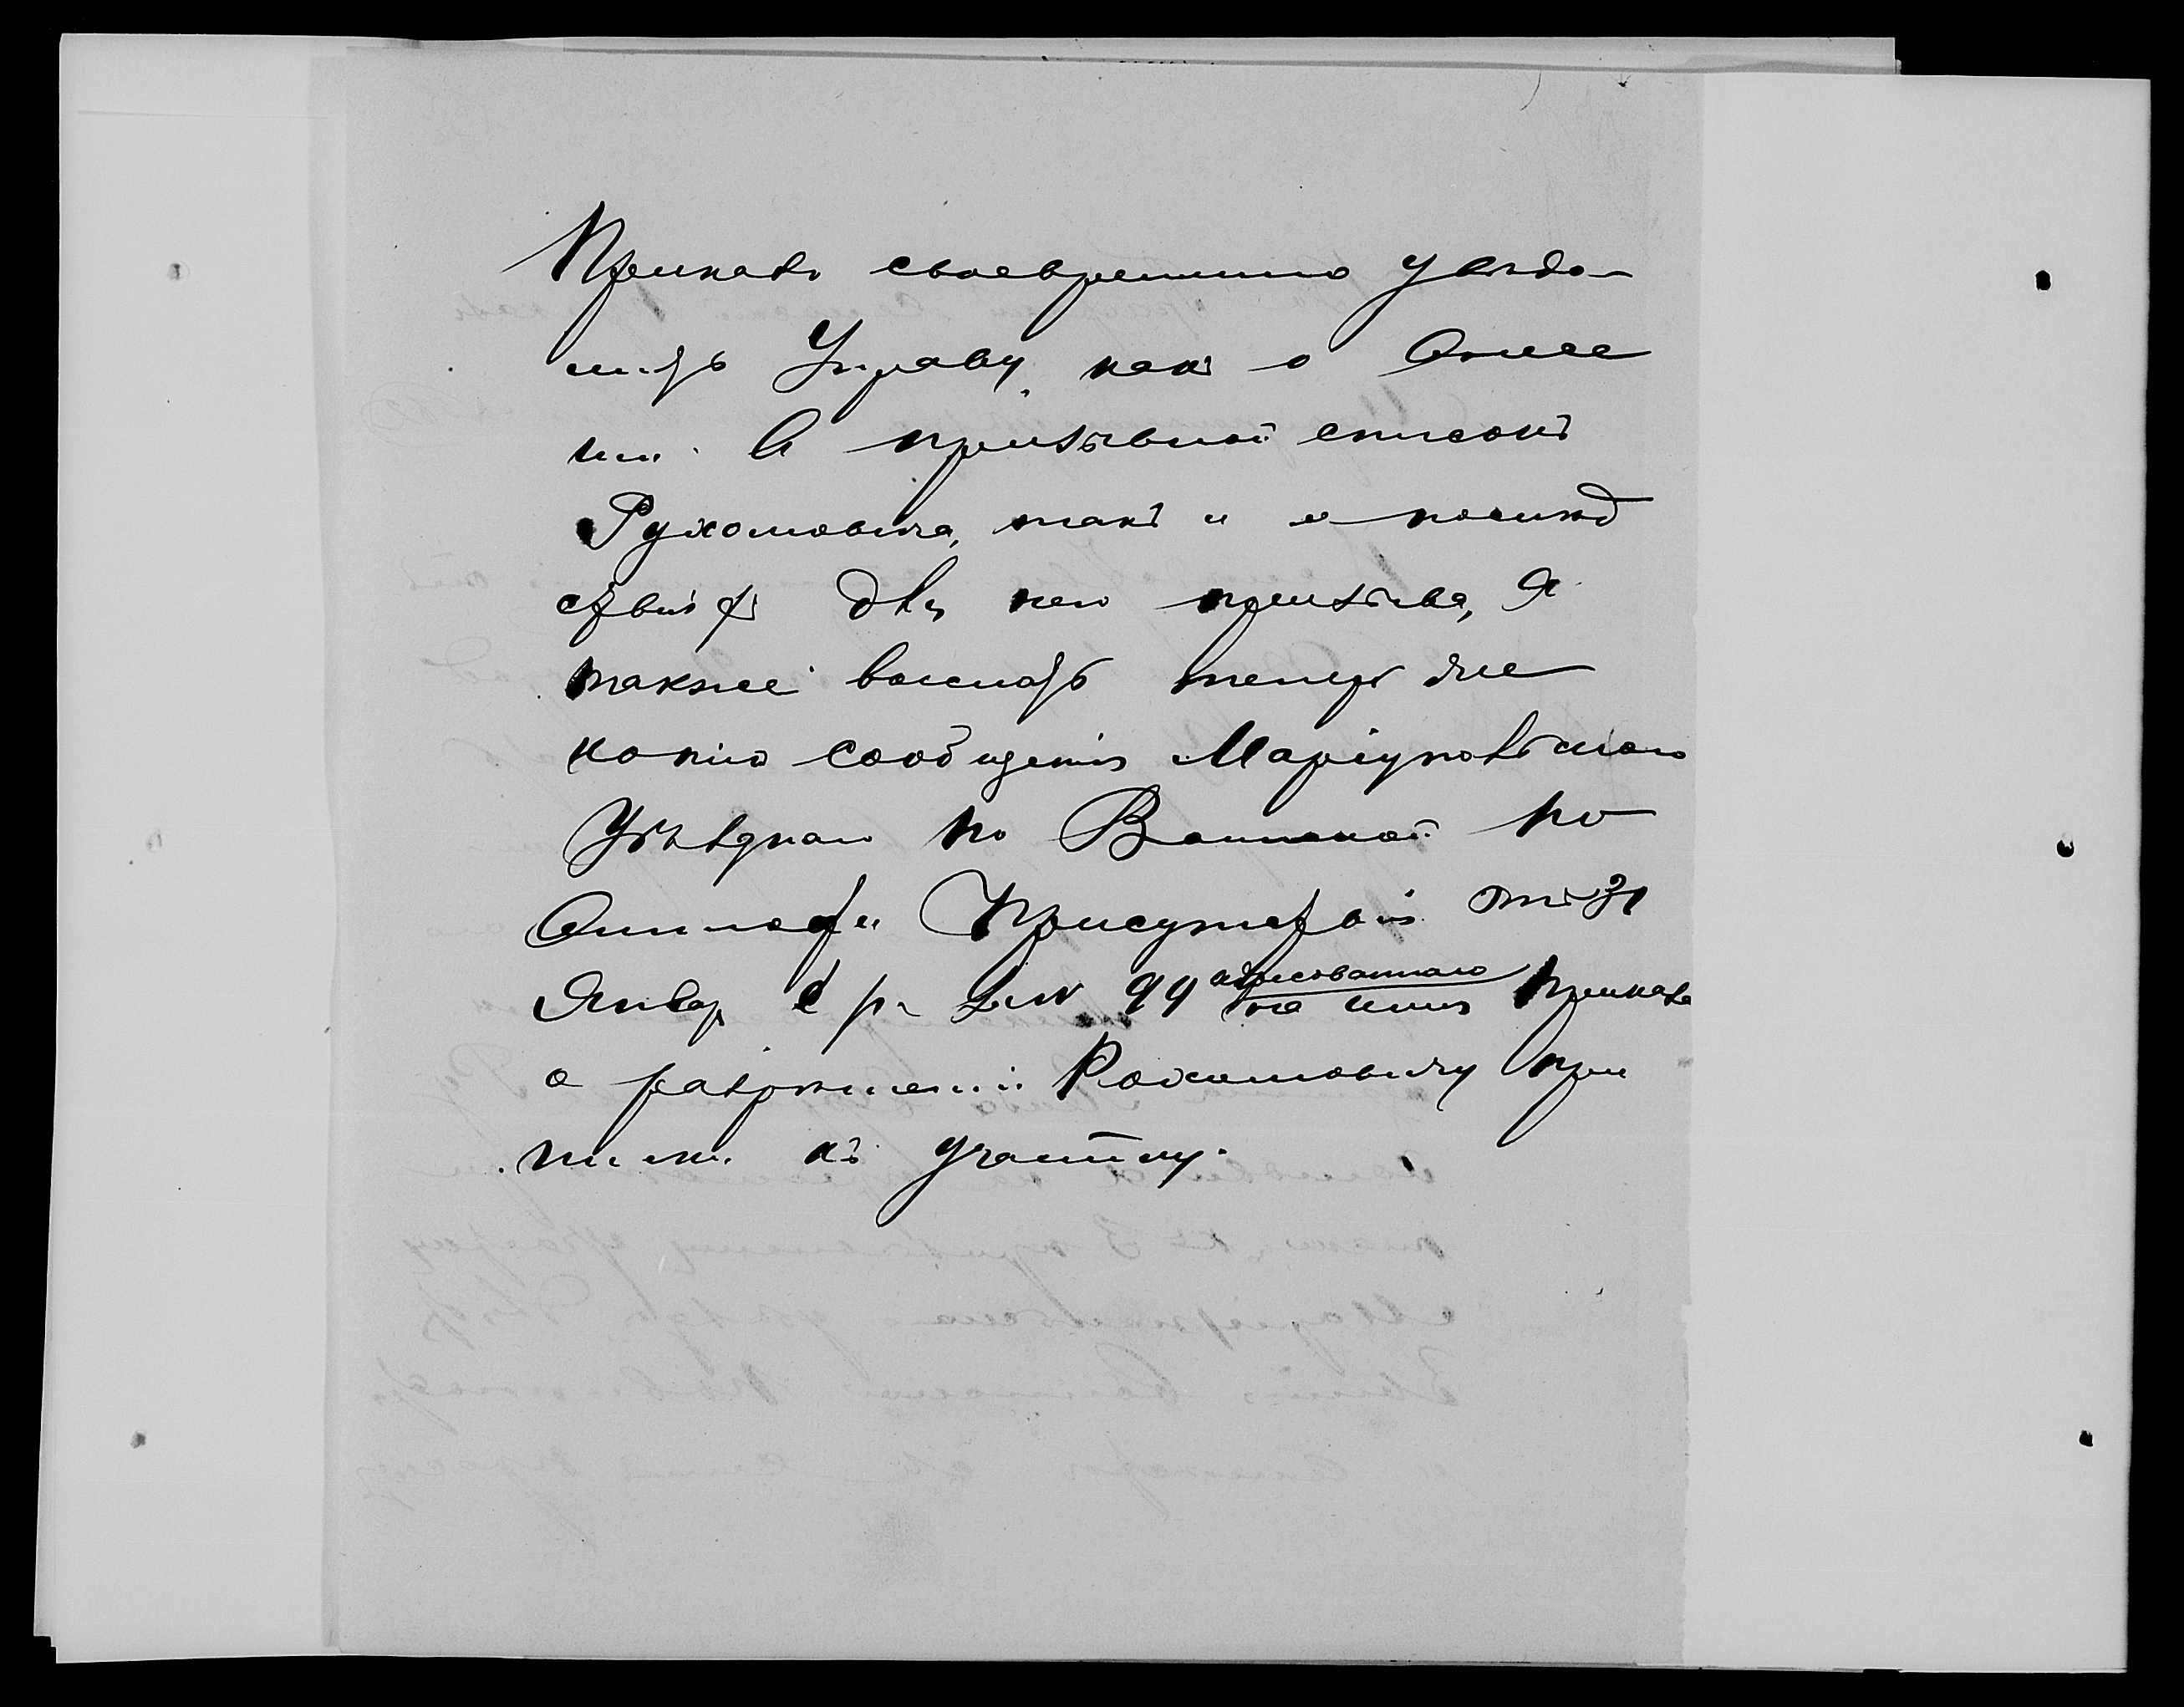 Приказъ своевременно увѣдо-
мить Управу, какъ о внесе
нiи въ призывной списокъ
Рухомовича, такъ и о послѣд
ствiяхъ для него призыва, а
также выслать теперь же
копiю сообщенiя Марiупольскаго
Уѣзднаго по Воинской По
винности Присутствiя отъ 31
Января с. г. за № 99 адресованнаго
на имя Приказа
о разрѣшенiи Рохомовичу при
писки къ участку.